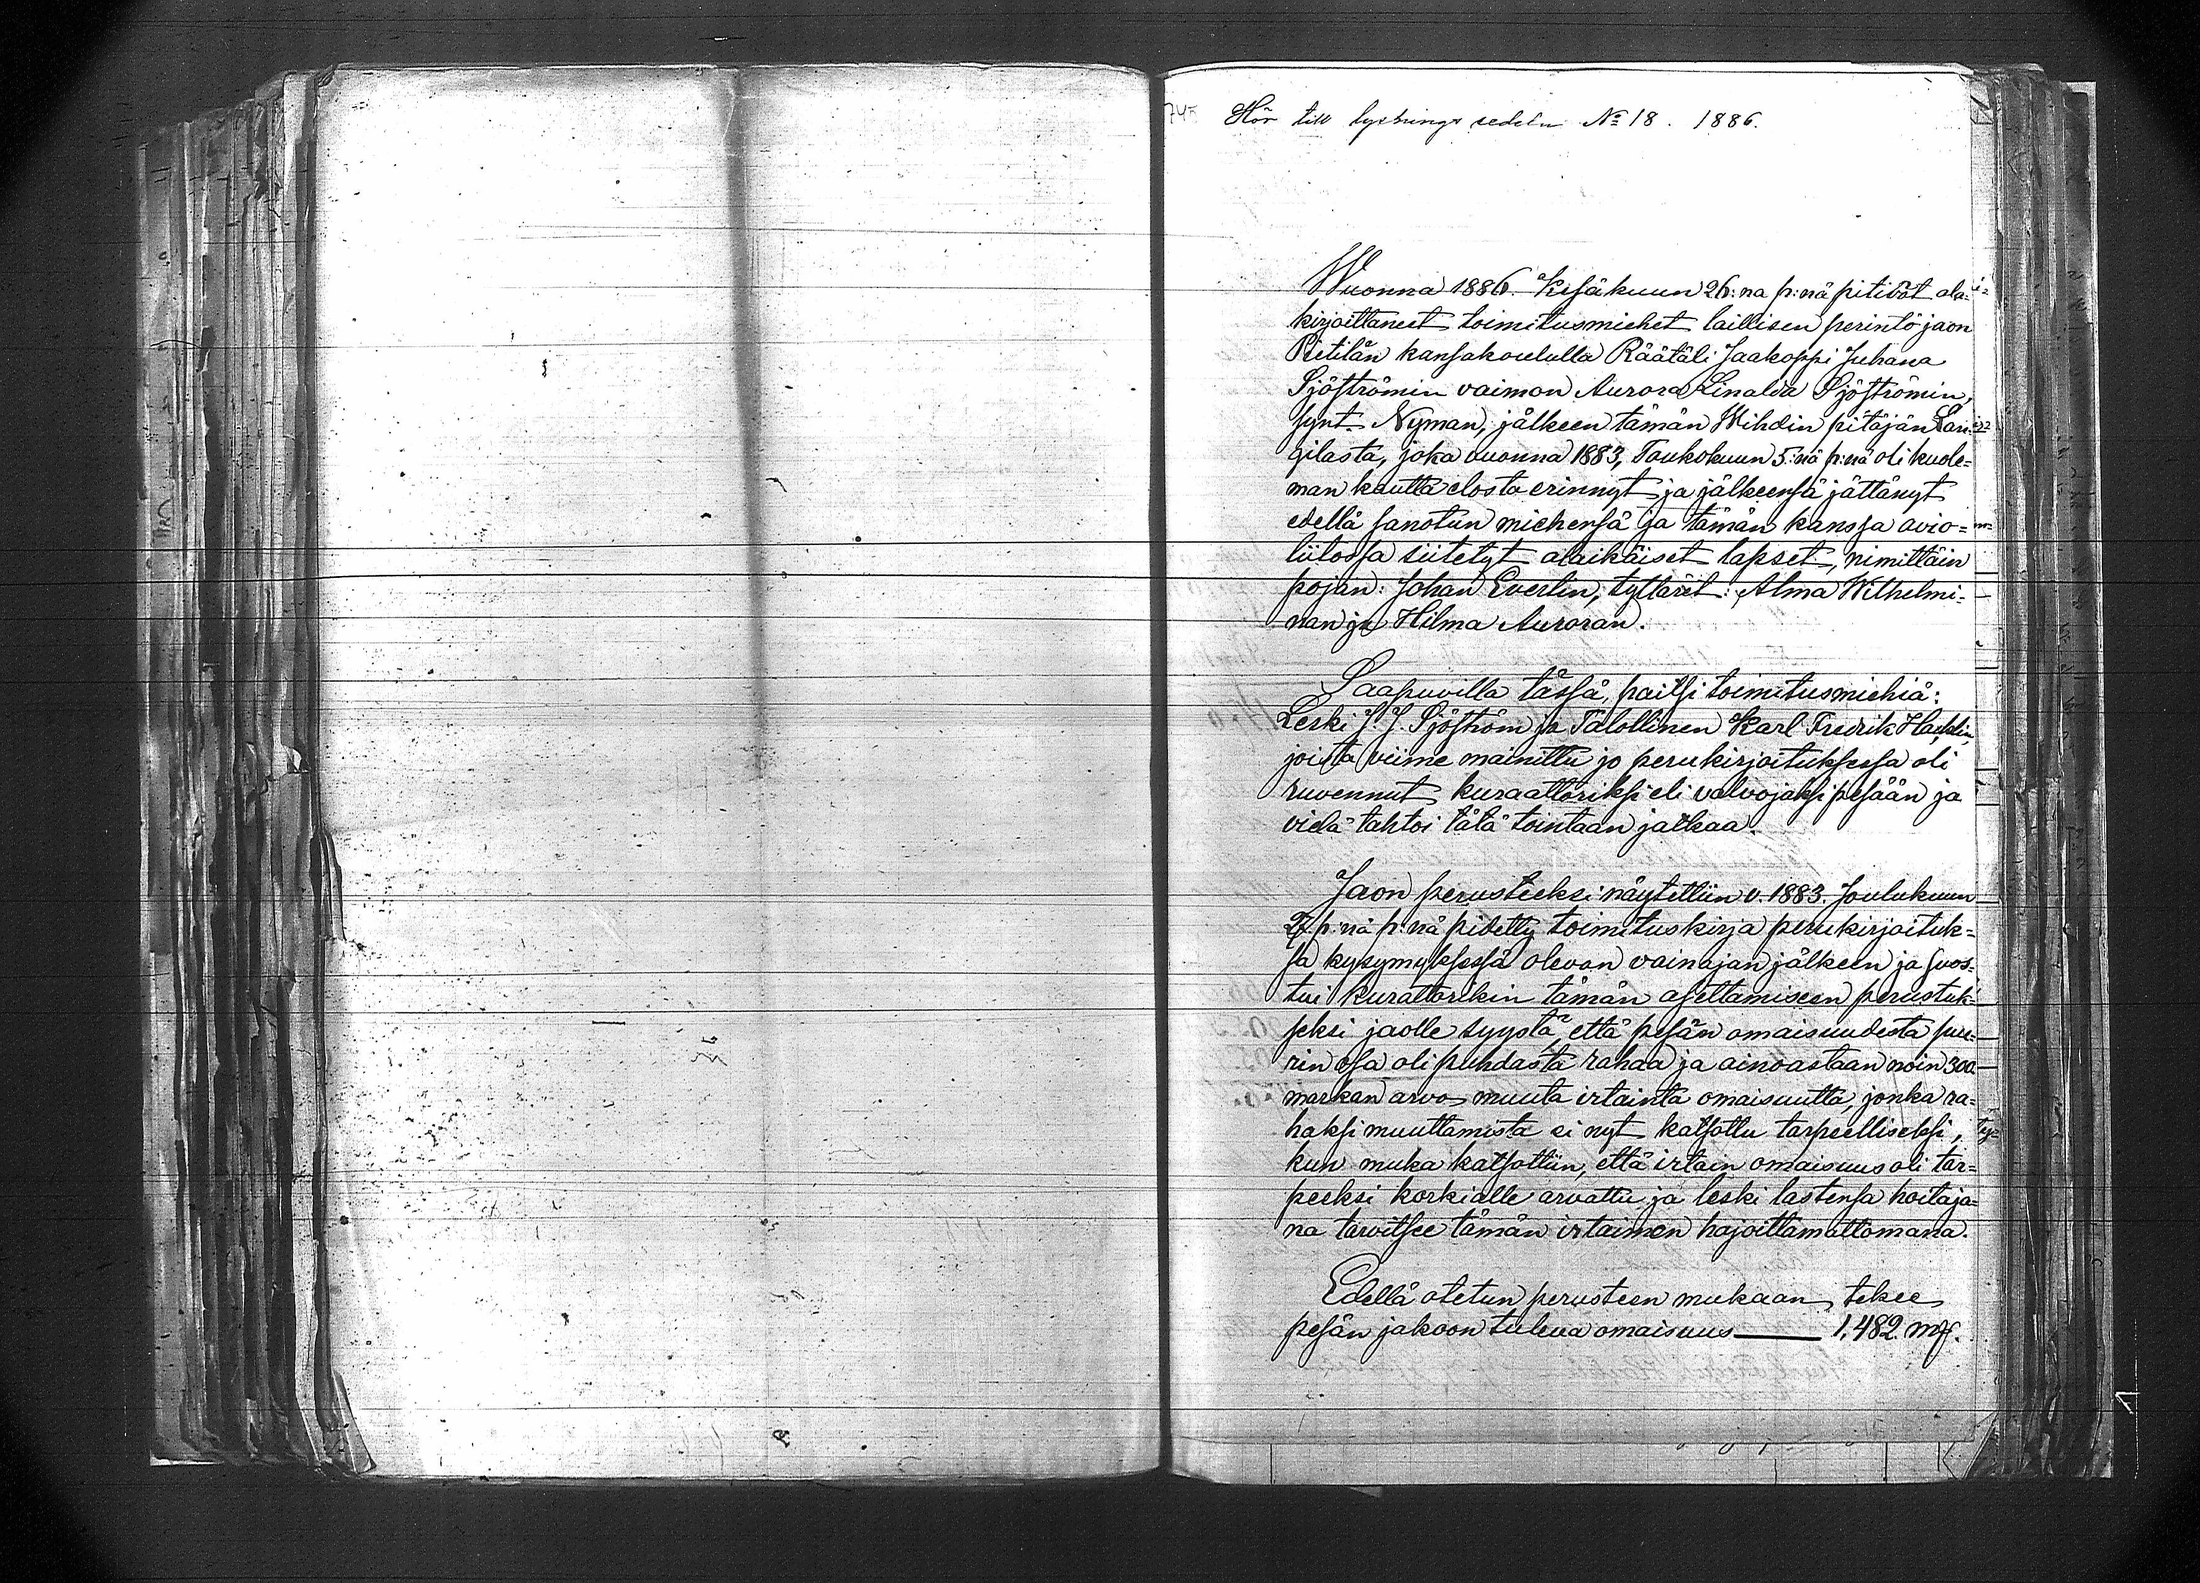 745
Hör till lysnings sedeln No 18. 1886.
Wuonna 1886. Kesäkuun 26:na p:nä pitivät ala-
kirjoittaneet toimitusmiehet laillisen perintöjaon
Pietilän kansakoululla Räätäli Jaakoppi Juhana
Sjöströmin vaimon Aurora Linalda Sjöströmin,
synt. Nyman, jälkeen tämän Wihdin pitäjän Lan-
gilasta, joka vuonna 1883, Toukokuun 5:nä p:nä oli kuole-
man kautta elosta erinnyt ja jälkeensä jättänyt
edellä sanotun miehensä ja tämän kanssa avio-
liitossa siitetyt alaikäiset lapset, nimittäin
pojan: Johan Evertin, tyttäret: Alma Wilhelmi-
nan ja Hilma Auroran.
Saapuvilla tässä, paitsi toimitusmiehiä:
Leski J. J. Sjöström ja Talollinen Karl Fredrik
joista viime mainittu jo perukirjoituksessa oli
ruvennut kuraattoriksi eli valvojaksi pesään ja
vielä tahtoi tätä tointaan jatkaa.
Jaon perusteeksi näytettiin v. 1883. Joulukuun
27 p:nä p:nä pidetty toimituskirja perukirjoituk-
sa kysymyksessä olevan vainajan jälkeen ja suos-
tui kurattorikin tämän asettamiseen perustuk-
seksi jaolle syystä, että pesän omaisuudesta suu-
rin osa oli puhdasta rahaa ja ainoastaan noin 300
markan arvo muuta irtainta omaisuutta, jonka ra-
haksi muuttamista ei nyt katsottu tarpeelliseksi,
kun muka katsottiin, että irtain omaisuus oli tar-
peeksi korkialle arvattu ja leski lastensa hoitaja-
na tarvitsee tämän irtaimen hajoittamattomana.
Edellä otetun perusteen mukaan tekee
pesän jakoon tuleva omaisuus 1,482 mf.